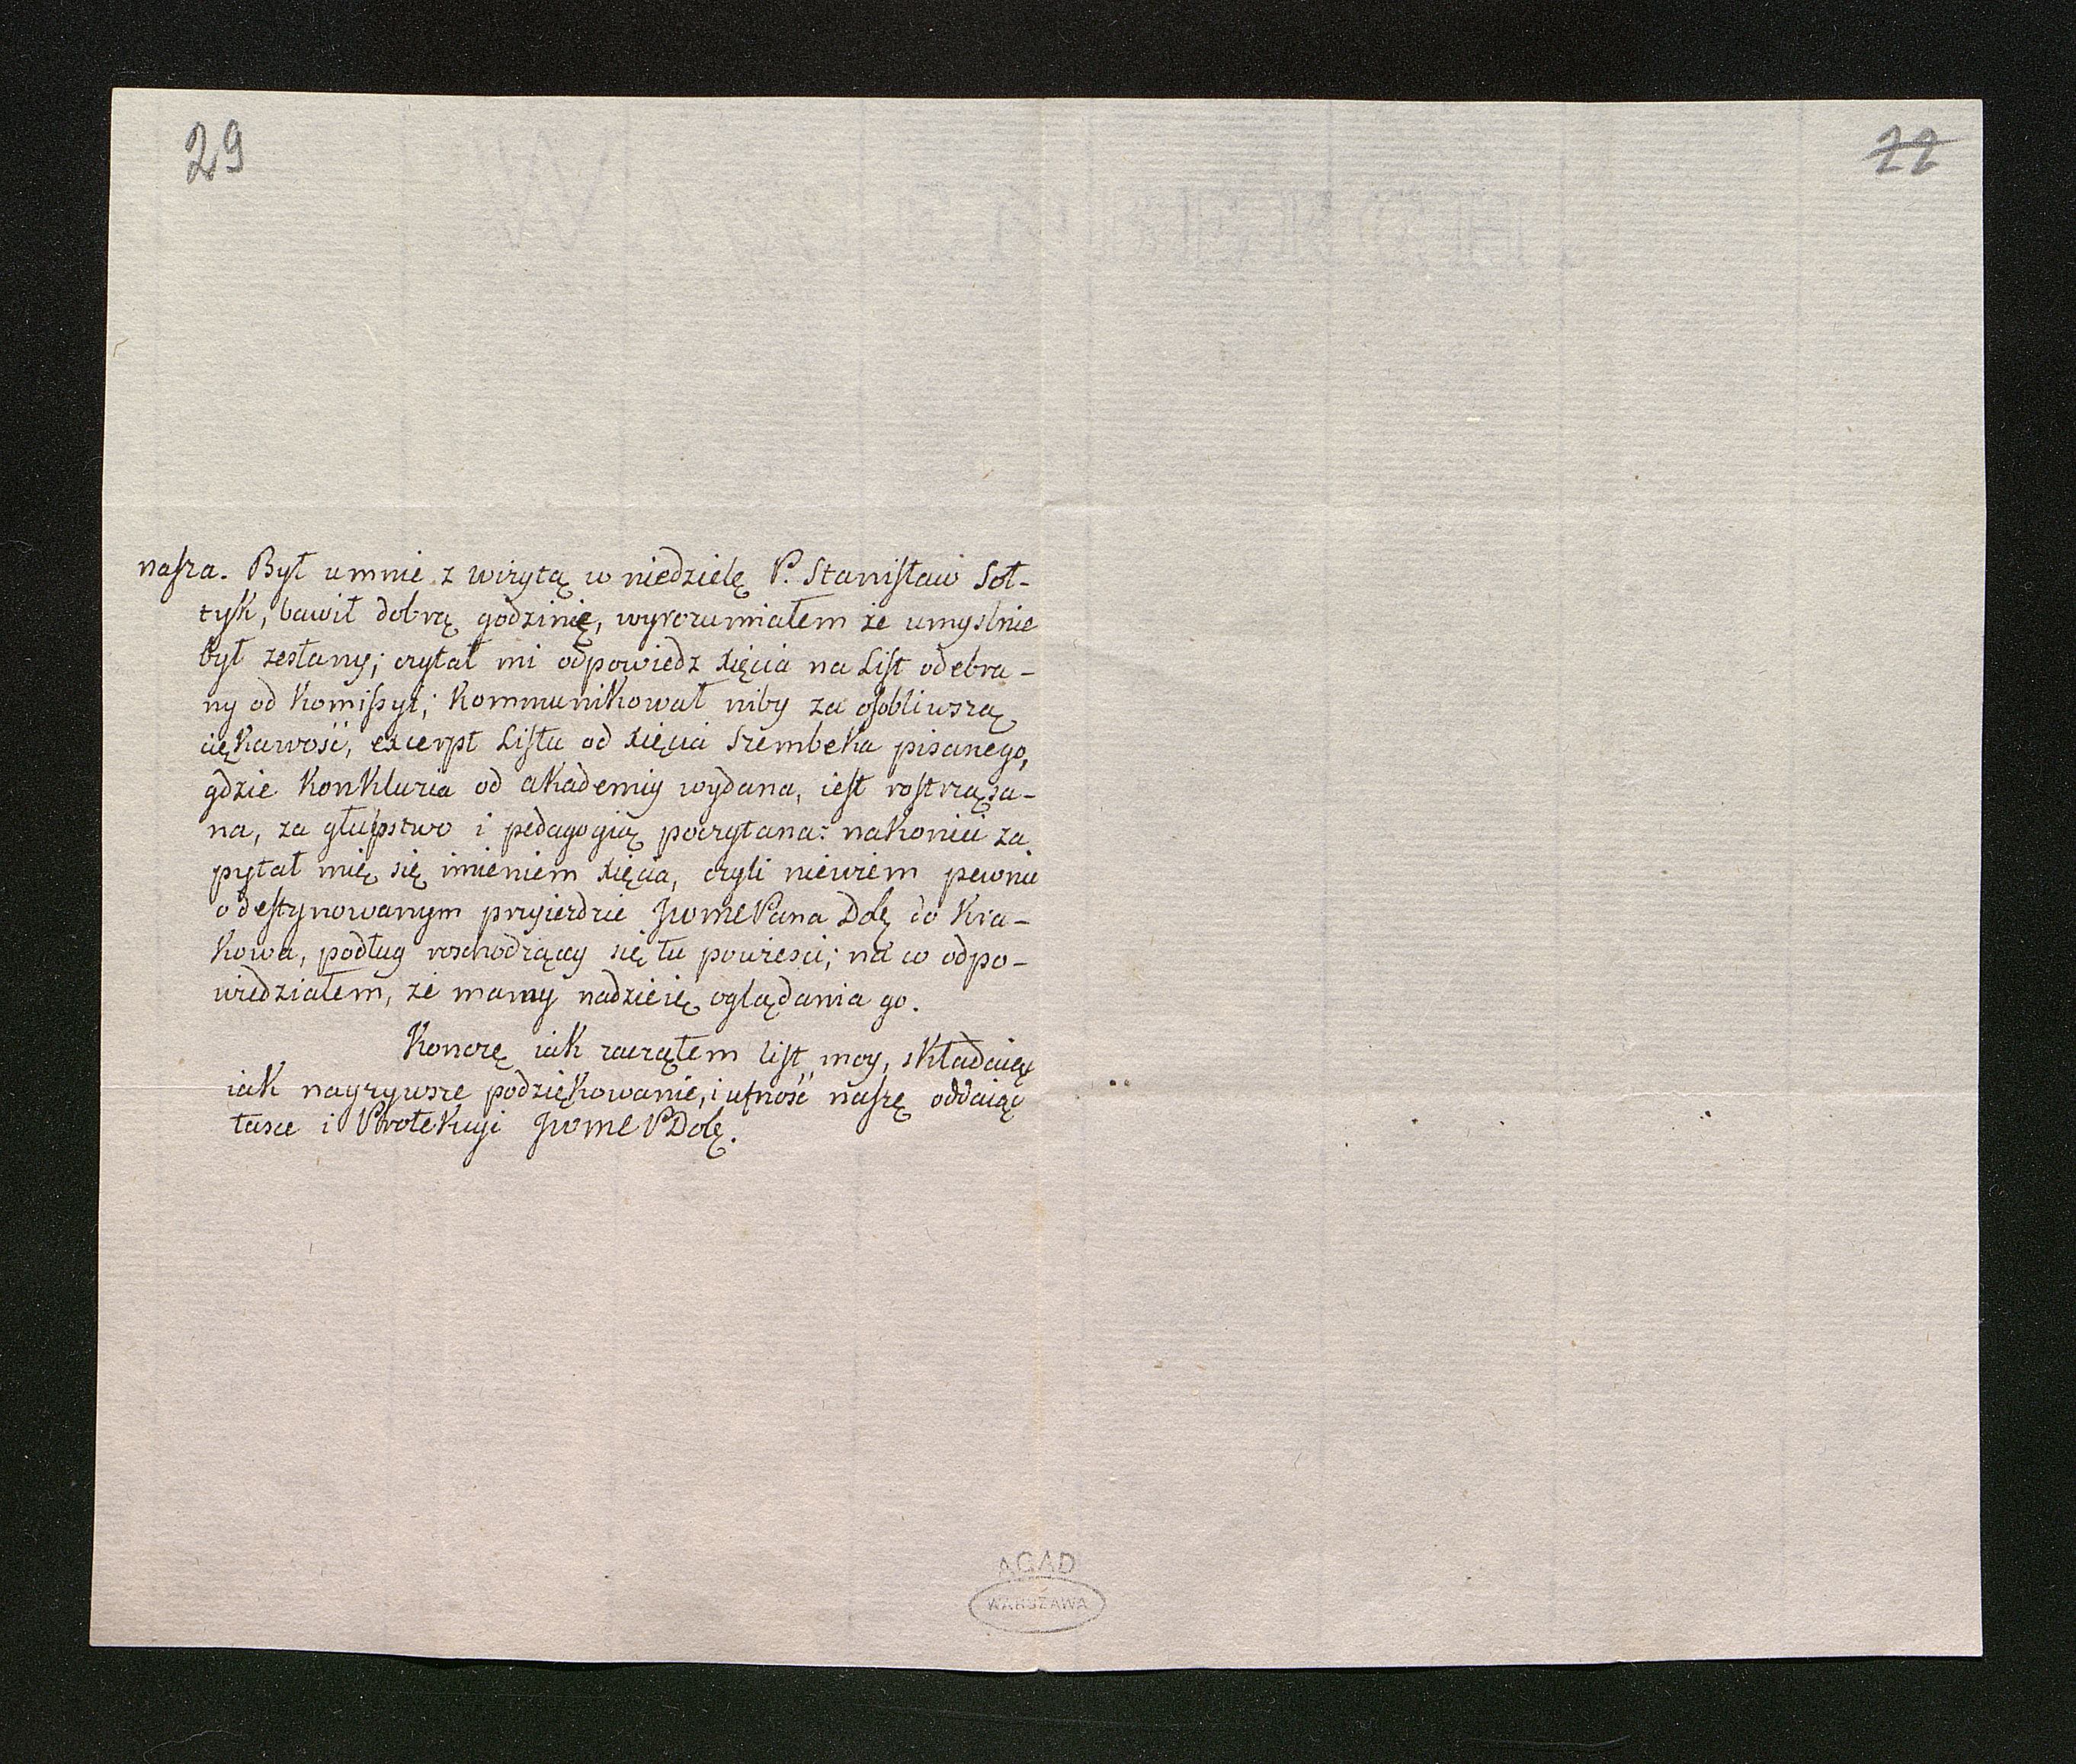 29
22
naſza. Był umnie z wizytą w niedzielę P. Staniſław Soł-
tyk, bawił dobrą godzinię, wyrozumiałem że umyslnie
był zesłany; czytał mi odpowiedz Xięcia na Liſt odebra-
ny od Komiſsyi; Kommunikował niby za oſobliwszą
ciękawość, excerpt Liſtu od Xięcia Szembeka pisanego,
gdzie Konkluzia od akademiy wydana, ieſt roſtrząsa-
na, za głupstwo i pedagogią poczytana: nakoniec za
pytał mię się imieniem Xięcia, czyli niewiem pewnie
o deſtynowanym przyiezdzie JWmćPana Dobę do Kra-
kowa, podług roschodzącey się tu powiesci; na co odpo-
wiedziałem, że mamy nadzieię oglądania go.
Konczę iak zacząłem liſt moy, składaiąc
iak nayzywsze podziękowanie, i ufność naſzę oddaiąc
łasce i Protekcyi JWmć P Dobę.
AGAD
WARSZAWA